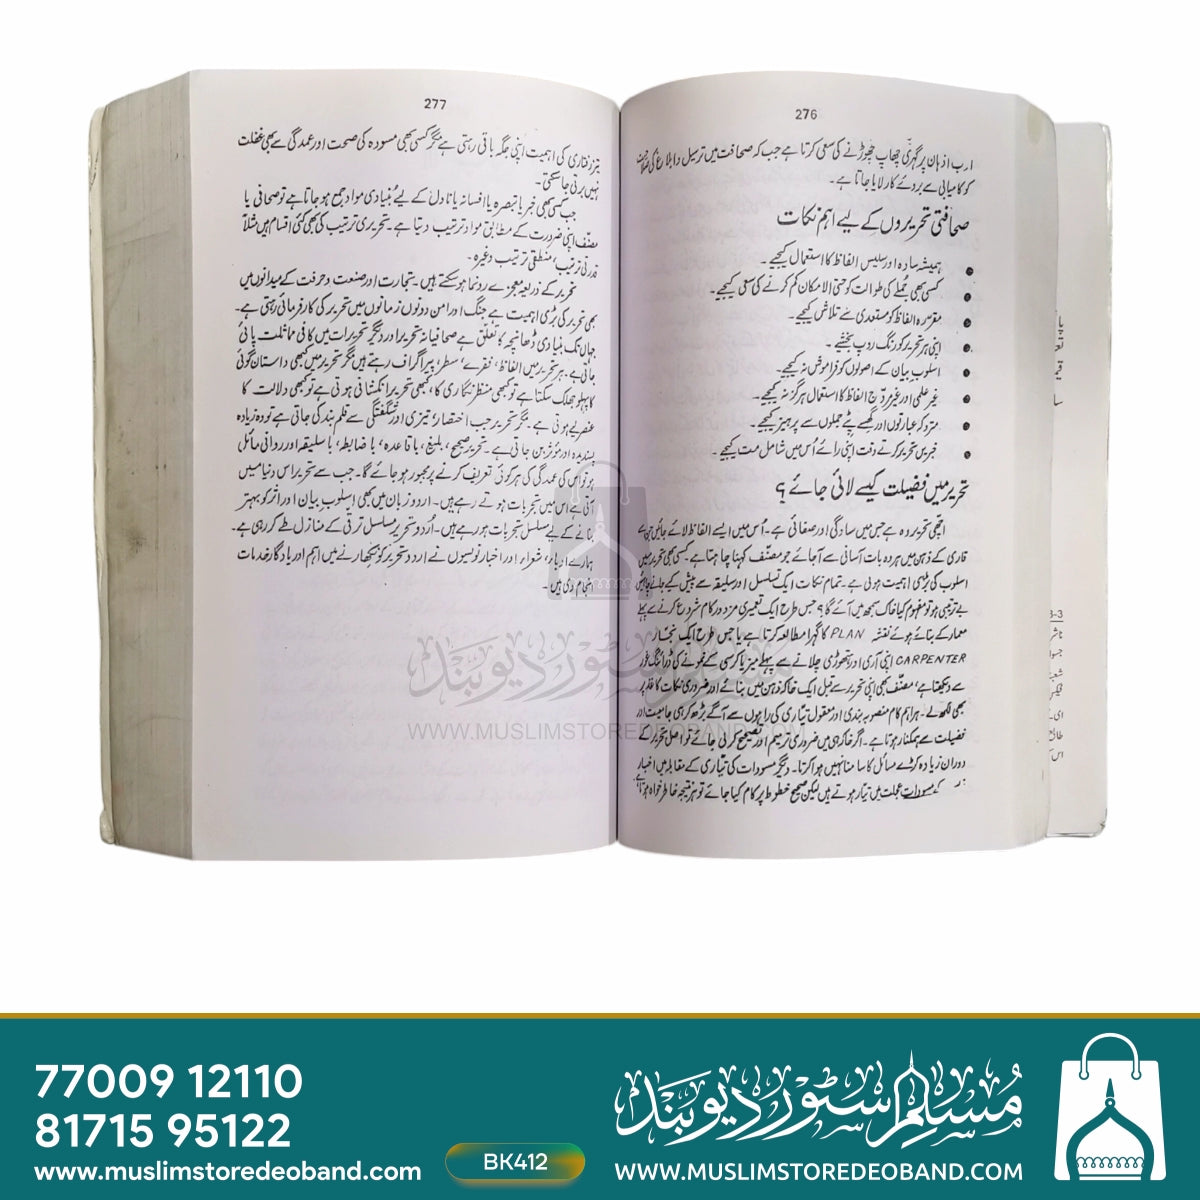 276
ادب اذہان پر گہری چھاپ چھوڑنے کی سعی کرتا ہے جب کہ صحافت میں ترسیل و ابلاغ کی
کو کامیابی سے بروئے کار لایا جاتا ہے۔
صحافتی تحریروں کے لیے اہم نکات
ہمیشہ سادہ اور سلیس الفاظ کا استعمال کیجیے۔
کسی بھی جملے کی طوالت کو حتی الامکان کم کرنے کی سعی کیجیے۔
مقررہ الفاظ کو مستعدی سے تلاشی کیجیے۔
اپنی ہر تحریر کو رنگ روپ بخشئے۔
اسلوب بیان کے اصولوں کو فراموش نہ کیجیے۔
غیر علمی اور غیر مروّج الفاظ کا استعمال ہرگز نہ کیجیے۔
متروکہ عبارتوں اور گھسے پٹے جملوں سے پرہیز کیجیے۔
خبریں تحریر کرتے وقت اپنی رائے اُس میں شامل مت کیجیے۔
تحریر میں فضیلت کیسے لائی جائے؟
اچھی تحریر وہ ہے جس میں سادگی اور صفائی ہے۔ اُس میں ایسے الفاظ لائے جائیں جن سے
قاری کے ذہن میں ہر وہ بات آسانی سے آجائے جو مصنف کہنا چاہتا ہے۔ کسی بھی تحریر میں
اسلوب کی بڑی اہمیت ہوتی ہے۔ تمام نکات ایک تسلسل اور سلیقہ سے پیش کیے جانے چاہئیں
بے ترتیبی ہو تو مفہوم کیا خاک سمجھ میں آئے گا؟ جس طرح ایک تعمیری مزدور کام شروع کرنے سے پہلے
معمار کے بنائے ہوئے نقشہ PLAN کا گہرا مطالعہ کرتا ہے یا جس طرح ایک نجار
CARPENTER اپنی آری اور ہتھوڑی چلانے سے پہلے میز یا کرسی کے نمونے کی ڈرائنگ غور
سے دیکھتا ہے، مصنف بھی اپنی تحریر سے قبل ایک خاکہ ذہن میں بنائے اور ضروری نکات کاغذ پر
بھی لکھ لے۔ ہر اہم کام منصوبہ بندی اور معقول تیاری کی راہوں سے آگے بڑھ کر ہی جامعیت اور
فضیلت سے ہمکنار ہوتا ہے۔ اگر خاکہ ہی میں ضروری ترمیم اور تصحیح کر لی جائے تو اصل تحریر کے
دوران زیادہ کڑے مسائل کا سامنا نہیں ہوا کرتا۔ دیگر مسودات کی تیاری کے مقابلہ میں اخبار
کے مسودات عجلت میں تیار ہوتے ہیں لیکن صحیح خطوط پر کام کیا جائے تو ہر نتیجہ خاطر خواہ ہوتا ہے
277
تیز رفتاری کی اہمیت اپنی جگہ باقی رہتی ہے مگر کسی بھی مسودہ کی صحت اور عمدگی سے بھی غفلت
نہیں برتی جاسکتی۔
جب کسی بھی خبر یا تبصرہ یا افسانہ یا ناول کے لیے بُنیادی مواد جمع ہو جاتا ہے تو صحافی یا
مصنّف اپنی ضرورت کے مطابق مواد ترتیب دیتا ہے۔ تحریری ترتیب کی بھی کئی اقسام ہیں مثلاً
قدرتی ترتیب، منطقی ترتیب وغیرہ۔
تحریر کے ذریعہ معجزے رونما ہوسکتے ہیں۔ تجارت اور صنعت و حرفت کے میدانوں میں
بھی تحریر کی بڑی اہمیت ہے جنگ اور امن دونوں زمانوں میں تحریر کی کار فرمائی رہتی ہے۔
جہاں تک بنیادی ڈھانچہ کا تعلق ہے صحافیانہ تحریر اور دیگر تحریرات میں کافی مماثلت پائی
جاتی ہے۔ ہر تحریر میں الفاظ، فقرے، سطر، پیراگراف رہتے ہیں مگر تحریر میں کبھی داستان گوئی
کا پہلو جھلک سکتا ہے تو کبھی منظر نگاری کا، کبھی تحریر انکشافی ہوتی ہے تو کبھی دلالت کا
عنصر لیے ہوتی ہے۔ مگر تحریر جب اختصار، تیزی اور شگفتگی سے قلم بند کی جاتی ہے تو وہ زیادہ
پسندیدہ اور مؤثر بن جاتی ہے۔ تحریر صحیح، بلیغ، باقاعدہ، باضابطہ، باسلیقہ اور روانی مائل
ہو تو اس کی عمدگی کی ہر کوئی تعریف کرنے پر مجبور ہو جائے گا۔ جب سے تحریر اس دنیا میں
آئی ہے اس میں تجربات ہوتے رہے ہیں۔ اردو زبان میں بھی اسلوب بیان اور اثر کو بہتر
بنانے کے لیے مسلسل تجربات ہو رہے ہیں۔ اُردو تحریر مسلسل ترقی کے منازل طے کر رہی ہے۔
ہمارے ادباء، شعراء اور اخبار نویسوں نے اردو تحریر کو نکھارنے میں اہم اور یادگار خدمات
انجام دی ہیں۔
مسلم سٹور دیوبند
WWW.MUSLIMSTOREDEOBAND.COM
77009 12110
81715 95122
www.muslimstoredeoband.com
BK412
مسلم سٹور دیوبند
WWW.MUSLIMSTOREDEOBAND.COM